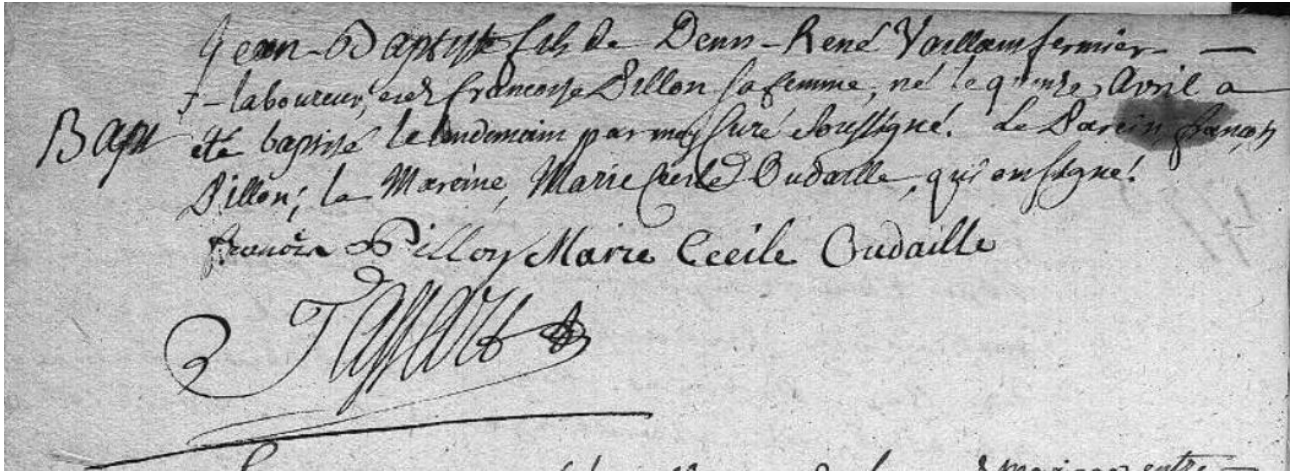 Jean-Baptiste fils de Denis-René Vaillant fermier-
laboureur, et de françoise Pillon sa femme, né le quinze Avril a
Bapt été baptisé le lendemain par moy Curé soussigné. Le Parein françois
Pillon; la Mareine, Marie Cecile Oudaille, qui ont signé.
françois Pillon Marie Cecile Oudaille